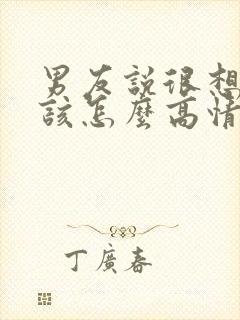 男友說很想
該怎麼高情
丁廣春